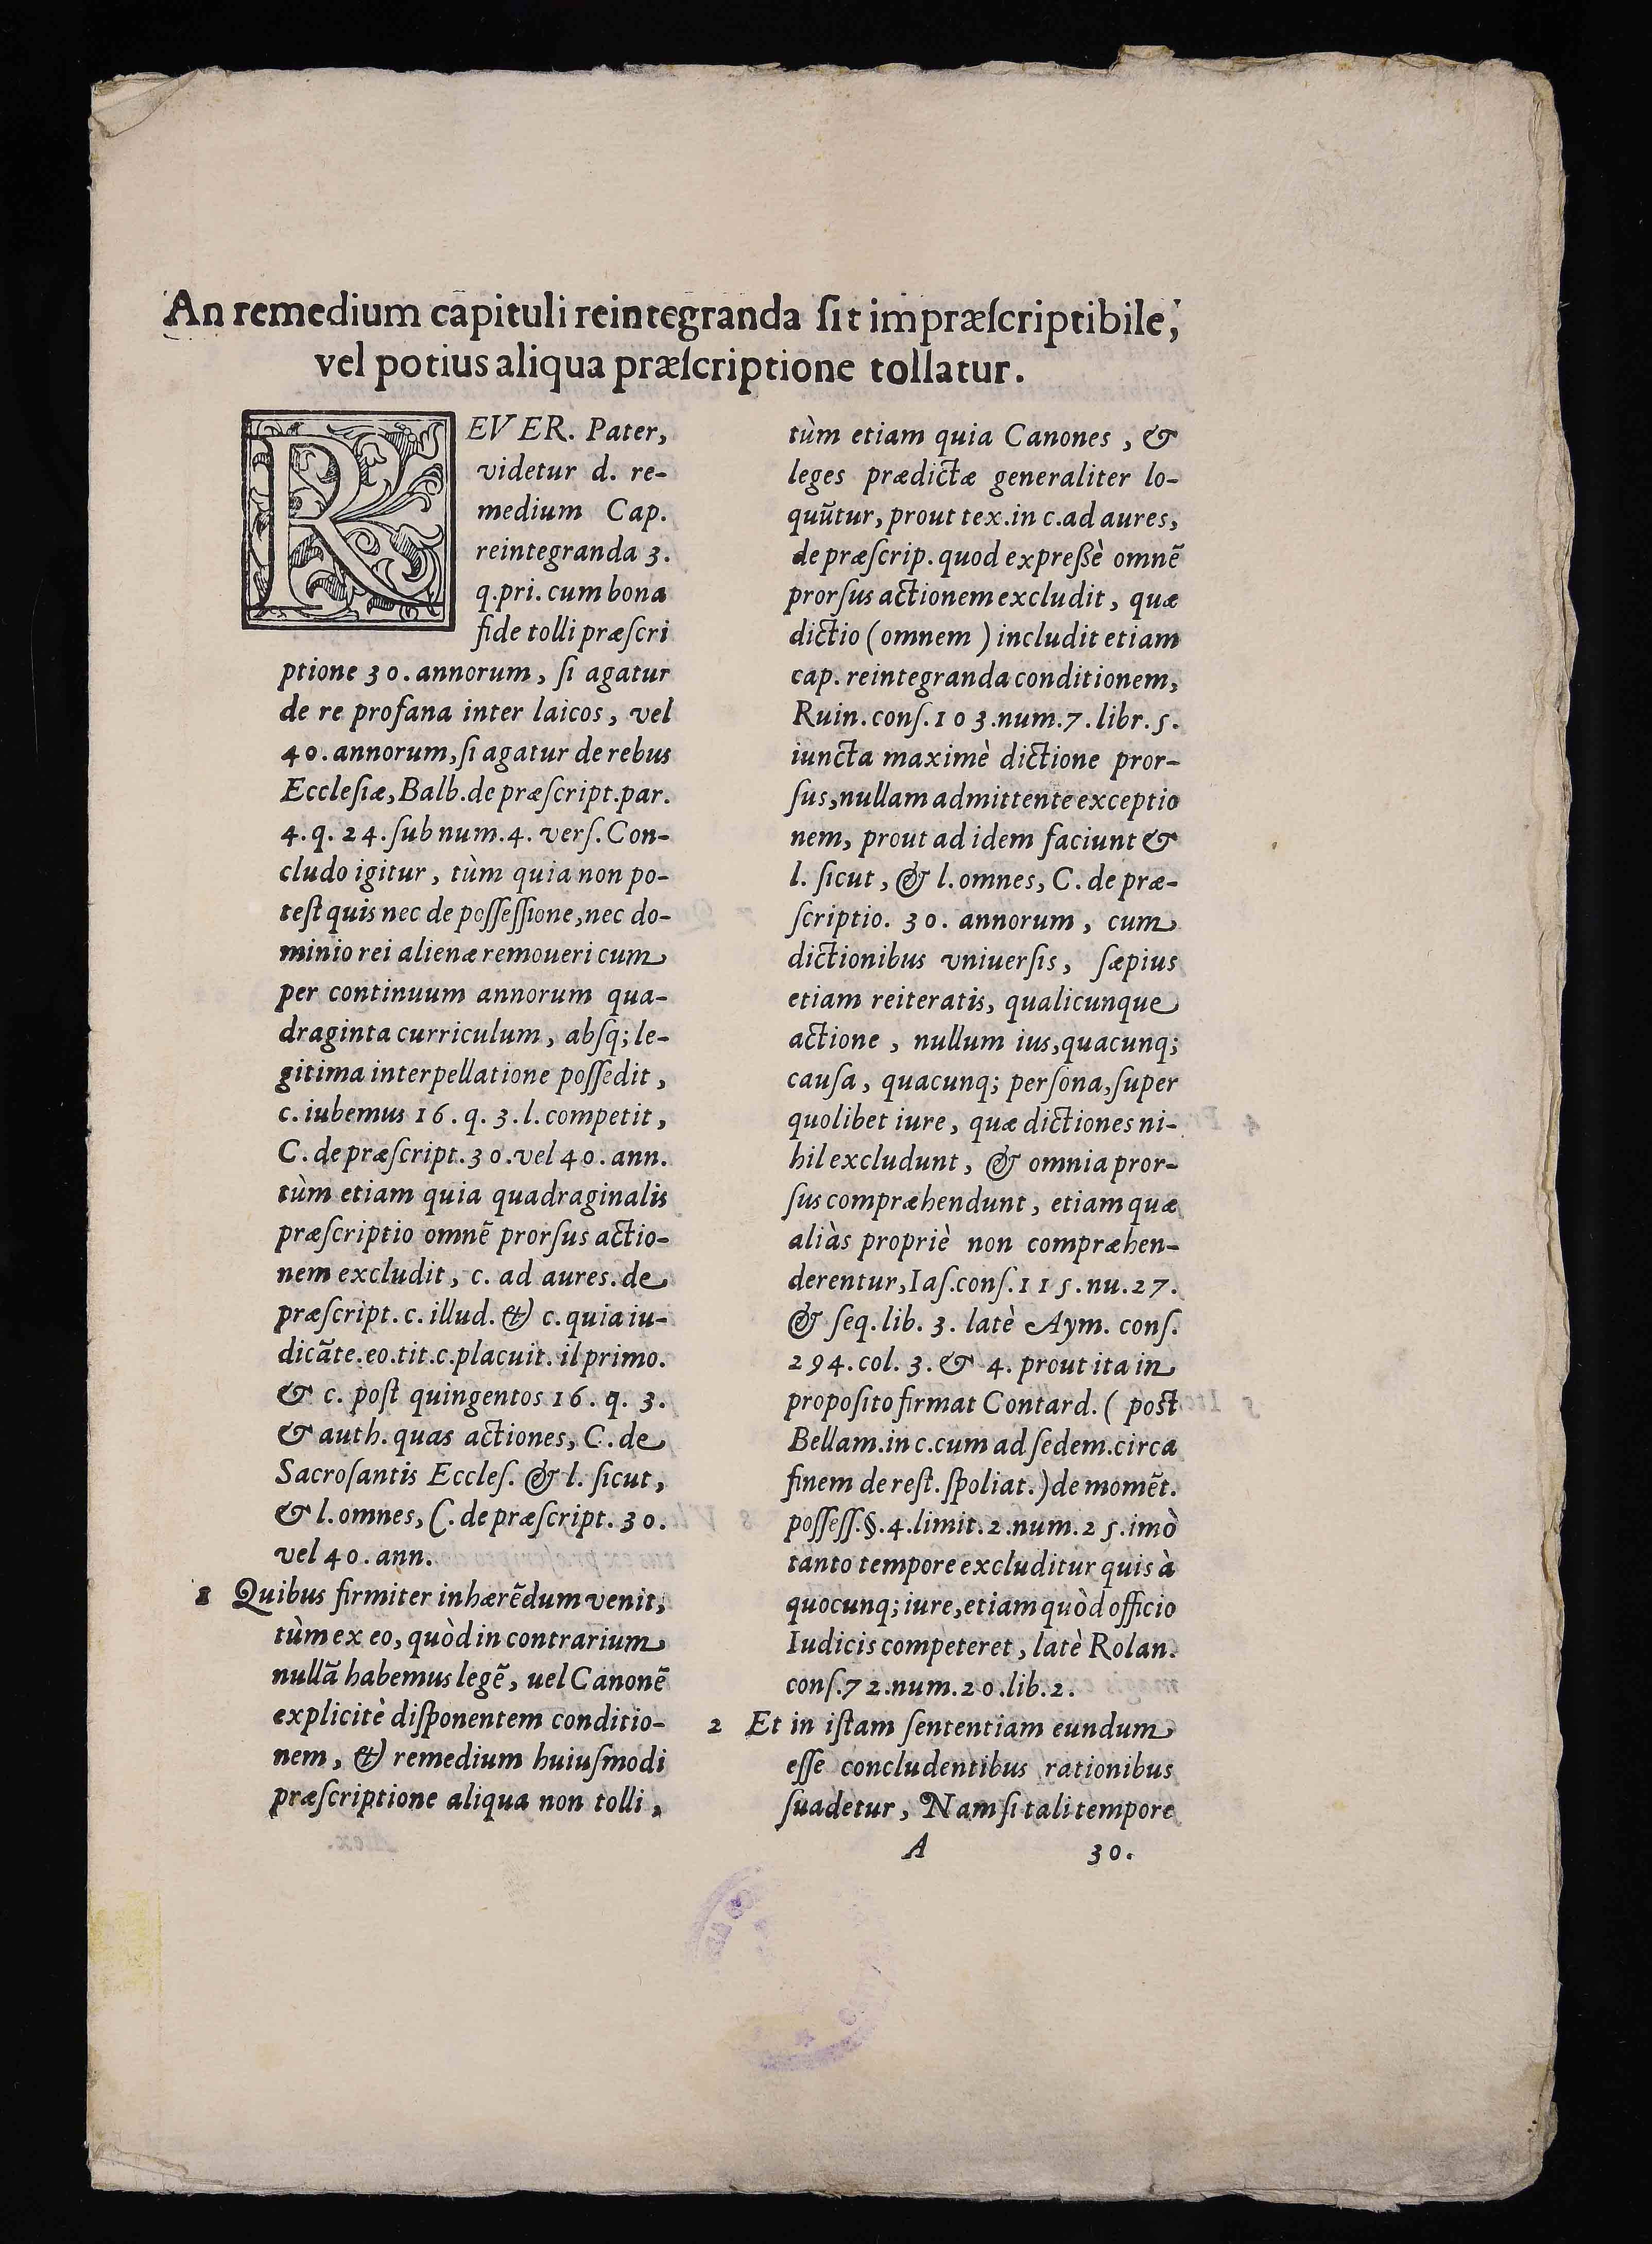 An remedium capituli reintegranda ſit impræſcriptibile,
vel potius aliqua præſcriptione tollatur.
REVER. Pater,
videtur d. re-
medium Cap.
reintegranda 3.
q.pri. cum bona
fide tolli præſcri
ptione 30. annorum, ſi agatur
de re profana inter laicos, vel
40. annorum, ſi agatur de rebus
Eccleſiæ, Balb. de præſcript. par.
4. q. 24. ſub num. 4. verſ. Con-
cludo igitur, tùm quia non po-
teſt quis nec de poſſeſſione, nec do-
minio rei alienæ remoueri cum
per continuum annorum qua-
draginta curriculum, abſq; le-
gitima interpellatione poſſedit,
c. iubemus 16. q. 3. l. competit,
C. de præſcript. 30. vel 40. ann.
tùm etiam quia quadraginalis
præſcriptio omnẽ prorſus actio-
nem excludit, c. ad aures. de
præſcript. c. illud. & c. quia iu-
dicãte. eo. tit. c. placuit. il primo.
& c. poſt quingentos 16. q. 3.
& auth. quas actiones, C. de
Sacroſantis Eccleſ. & l. ſicut,
& l. omnes, C. de præſcript. 30.
vel 40. ann.
1 Quibus firmiter inhærẽdum venit,
tùm ex eo, quòd in contrarium
nullã habemus legẽ, uel Canonẽ
explicitè diſponentem conditio-
nem, & remedium huiuſmodi
præſcriptione aliqua non tolli,
tùm etiam quia Canones, &
leges prædictæ generaliter lo-
quũtur, prout tex. in c. ad aures,
de præſcrip. quod expreßè omnẽ
prorſus actionem excludit, quæ
dictio (omnem) includit etiam
cap. reintegranda conditionem,
Ruin. conſ. 103. num. 7. libr. 5.
iuncta maximè dictione pror-
ſus, nullam admittente exceptio
nem, prout ad idem faciunt &
l. ſicut, & l. omnes, C. de præ-
ſcriptio. 30. annorum, cum
dictionibus vniuerſis, ſæpius
etiam reiteratis, qualicunque
actione, nullum ius, quacunq;
cauſa, quacunq; perſona, ſuper
quolibet iure, quæ dictiones ni-
hil excludunt, & omnia pror-
ſus compræhendunt, etiam quæ
aliàs propriè non compræhen-
derentur, Iaſ. conſ. 115. nu. 27.
& ſeq. lib. 3. latè Aym. conſ.
294. col. 3. & 4. prout ita in
propoſito firmat Contard. (post
Bellam. in c. cum ad ſedem. circa
finem de reſt. ſpoliat.) de momẽt.
poſſeſſ. §. 4. limit. 2. num. 25. imò
tanto tempore excluditur quis à
quocunq; iure, etiam quòd officio
Iudicis competeret, latè Rolan.
conſ. 72. num. 20. lib. 2.
2 Et in iſtam ſententiam eundum
eſſe concludentibus rationibus
ſuadetur, Nam ſi tali tempore
A 30.